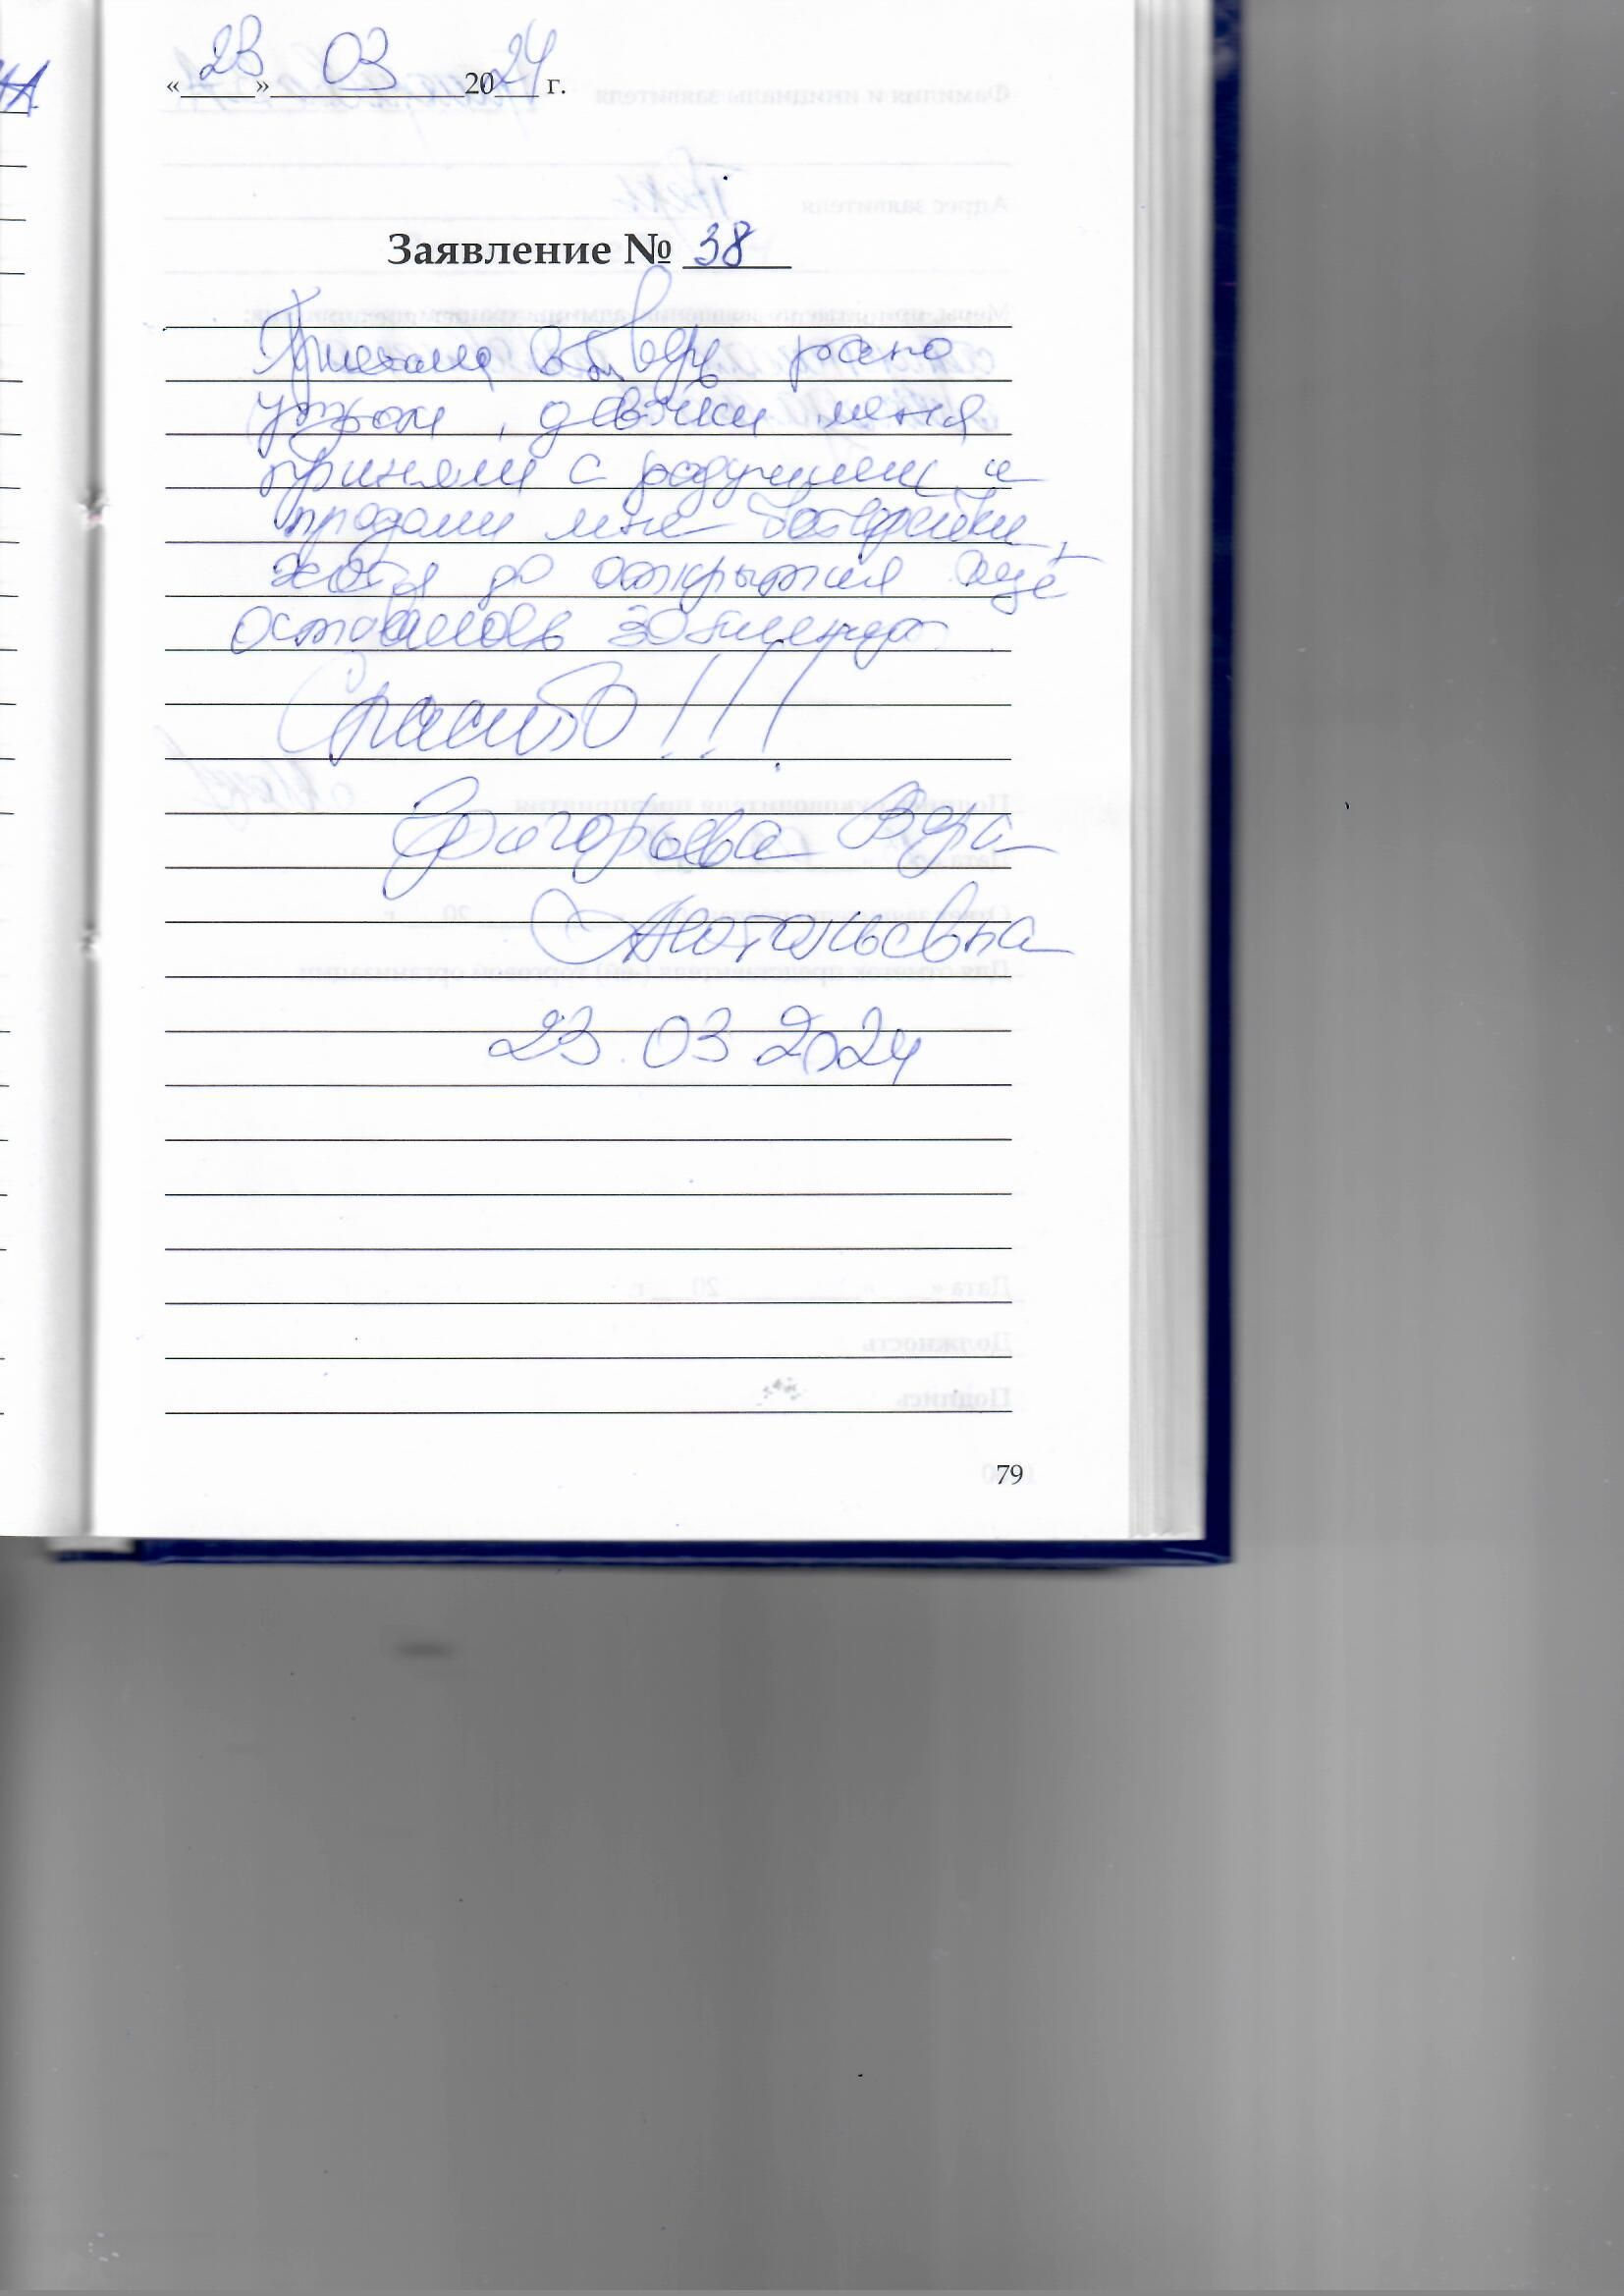 «23» 03 2024 г.
Заявление № 38
Приехала в Тверь рано
утром, девочки меня
приняли с радушием и
продали мне батарейки,
хотя до открытия ещё
оставалось 30 минут
Спасибо!!!
Григорьева Вера
Анатольевна
23.03.2024
79